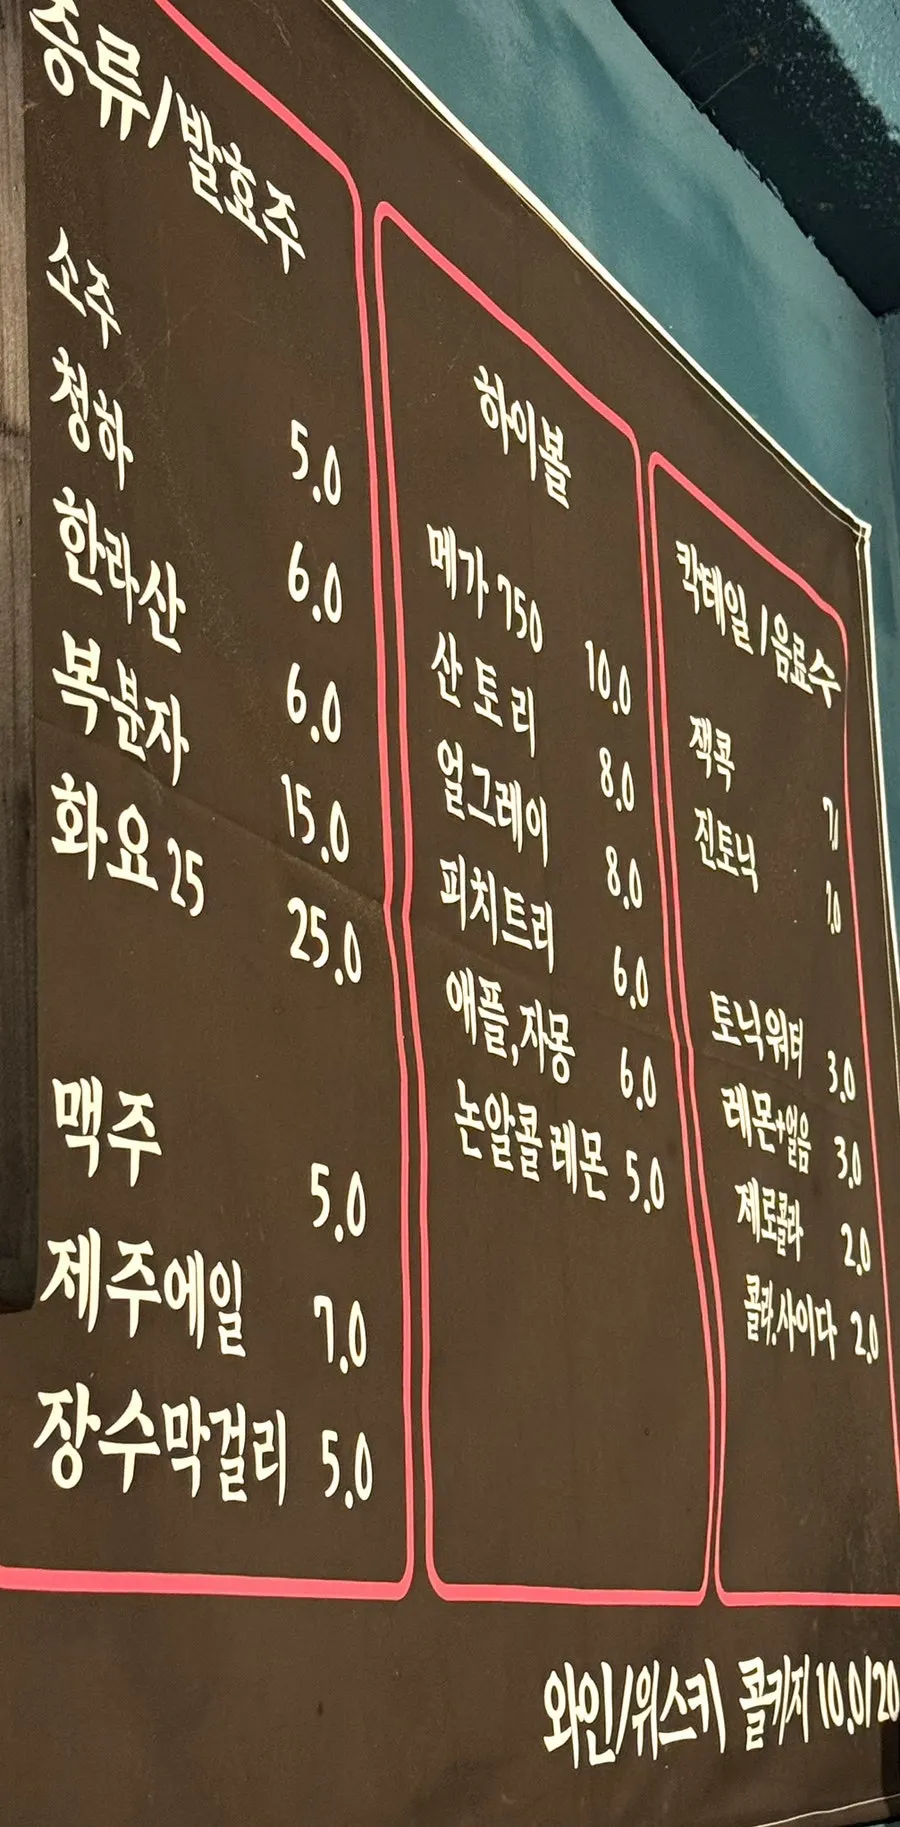 증류/발효주
소주 5.0
청하 6.0
한라산 6.0
복분자 15.0
화요25 25.0
맥주 5.0
제주에일 7.0
장수막걸리 5.0
하이볼
메가 750 10.0
산토리 8.0
얼그레이 8.0
피치트리 6.0
애플,자몽 6.0
논알콜 레몬 5.0
칵테일/음료수
잭콕
진토닉 7.0
토닉워터 3.0
레몬+얼음 3.0
제로콜라 2.0
콜라.사이다 2.0
와인/위스키 콜키지 10.0/20